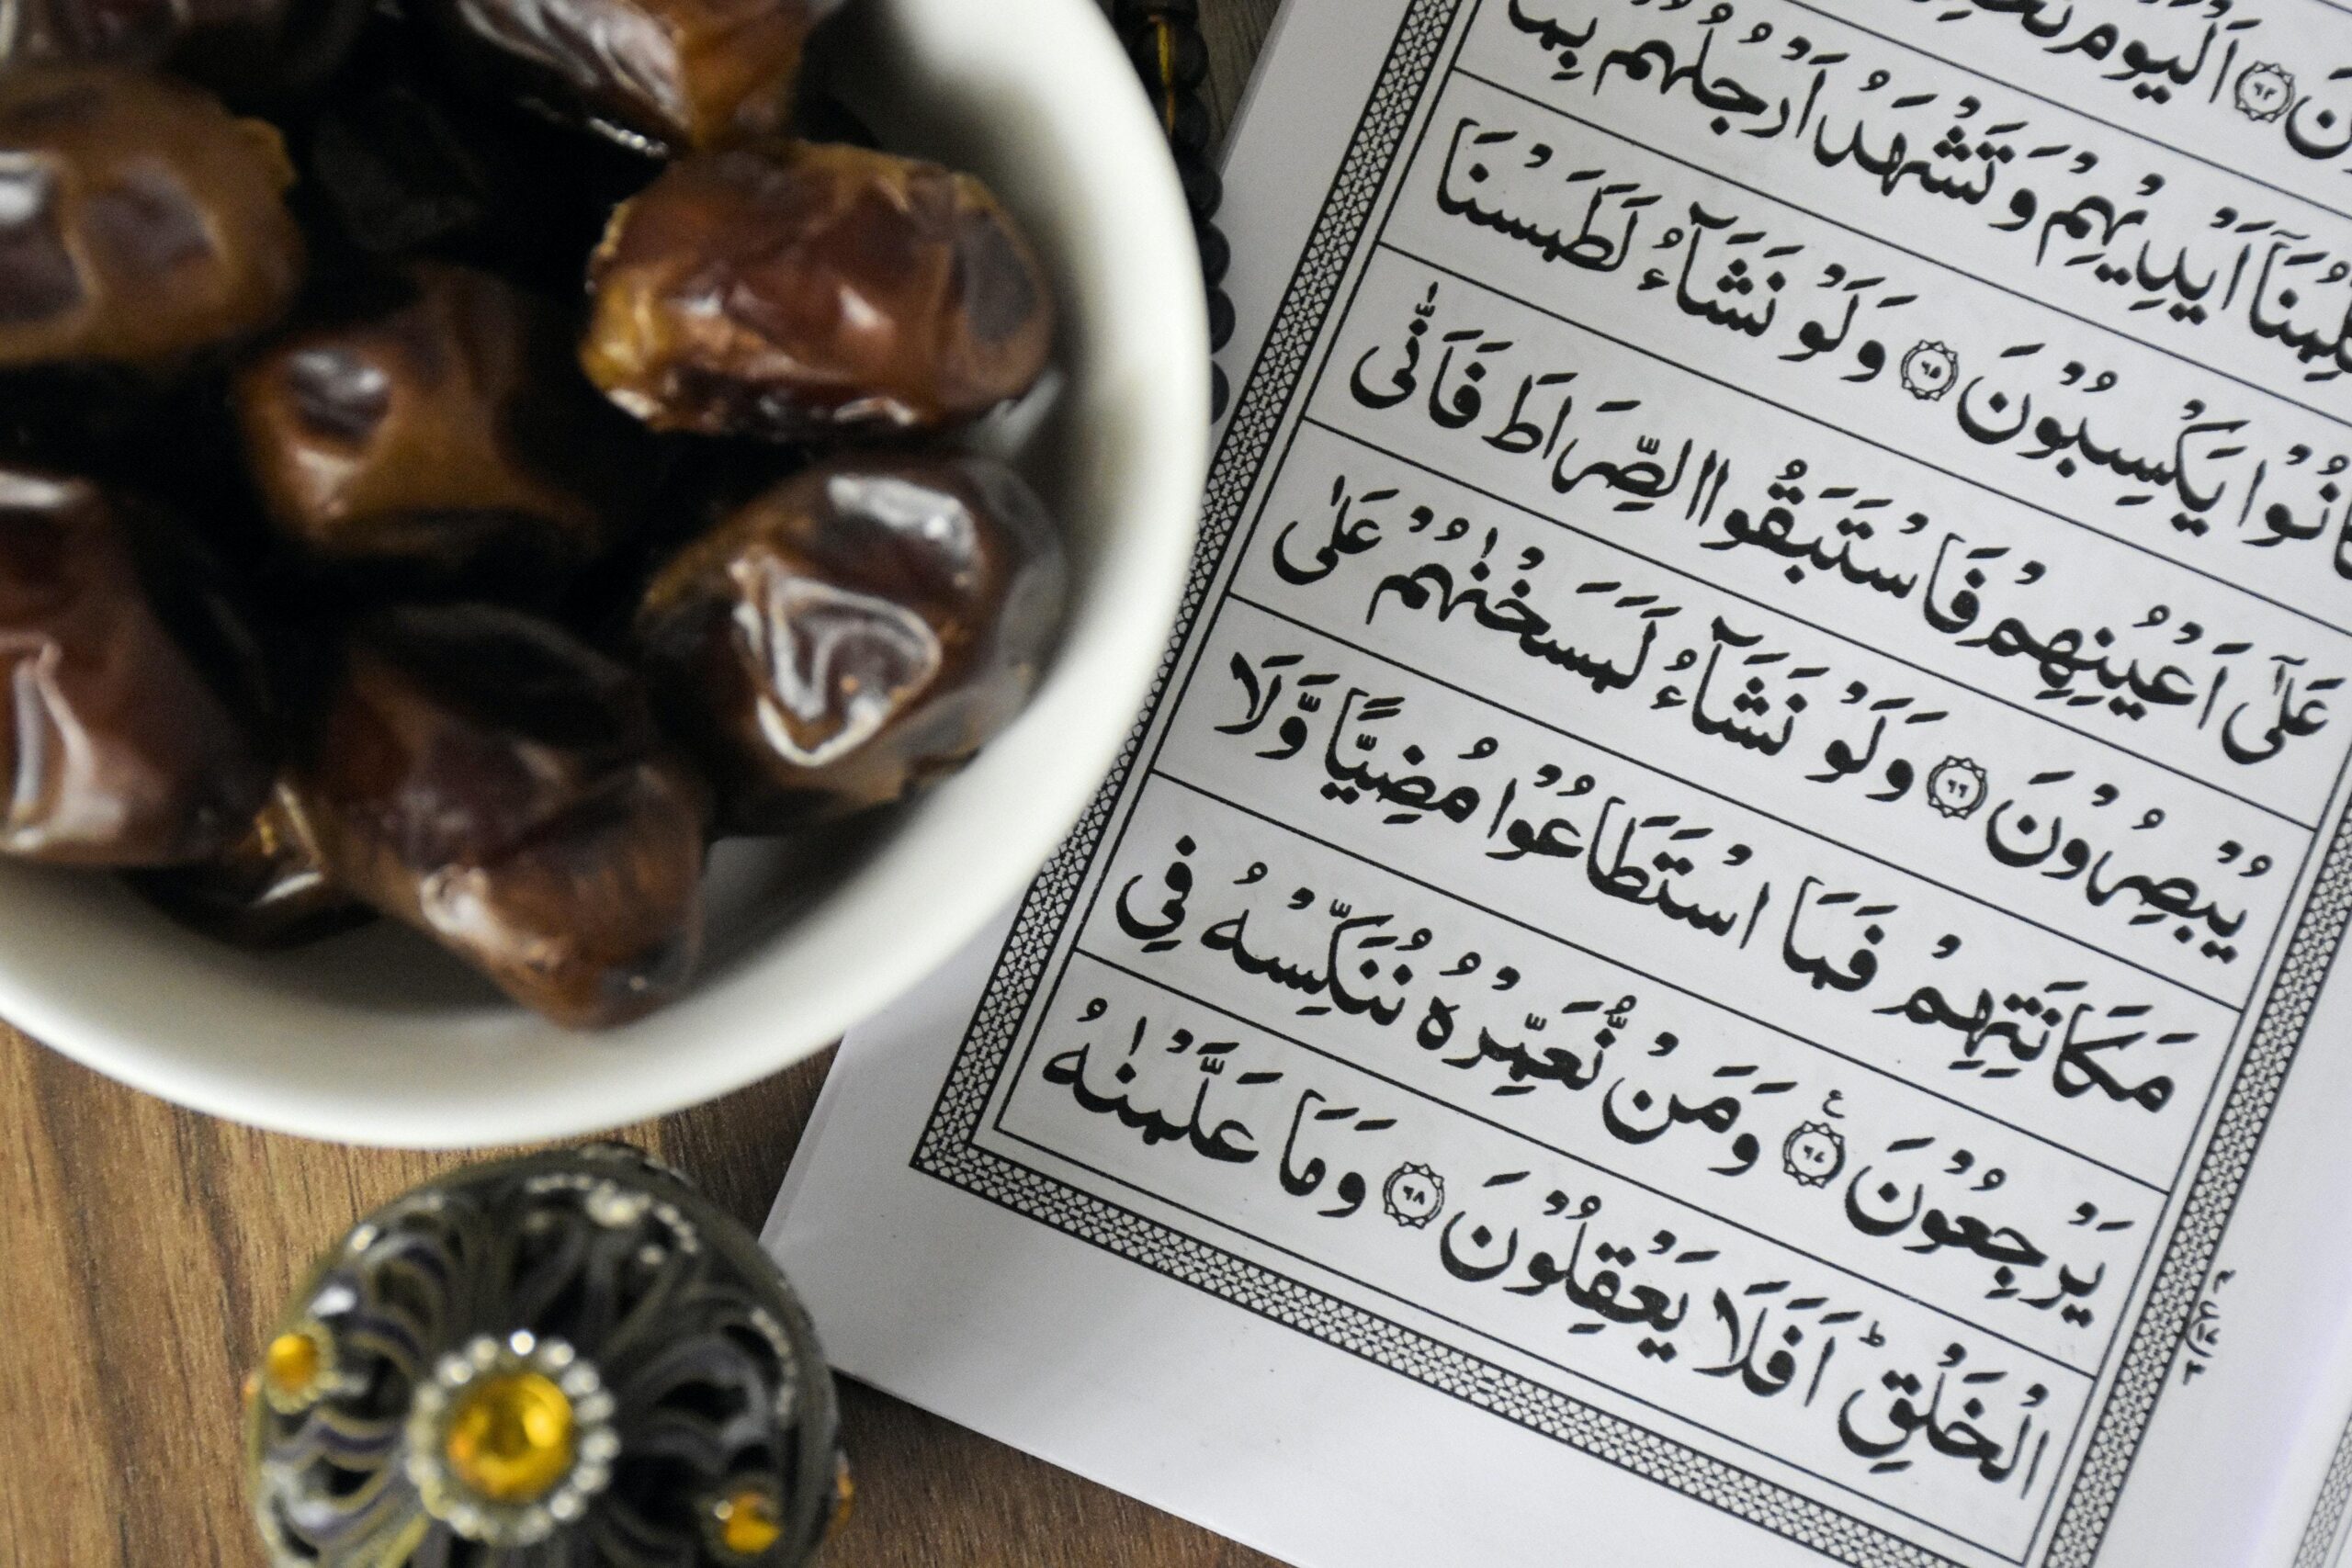 اَلْيَوْمَ
اَيْدِيْهِمْ وَتَشْهَدُ اَرْجُلُهُمْ بِمَا
كَانُوْا يَكْسِبُوْنَ ٦٥ وَلَوْ نَشَآءُ لَطَمَسْنَا
عَلٰٓى اَعْيُنِهِمْ فَاسْتَبَقُوا الصِّرَاطَ فَاَنّٰى
يُبْصِرُوْنَ ٦٦ وَلَوْ نَشَآءُ لَمَسَخْنٰهُمْ عَلٰى
مَكَانَتِهِمْ فَمَا اسْتَطَاعُوْا مُضِيًّا وَّلَا
يَرْجِعُوْنَ ٦٧ ع وَمَنْ نُّعَمِّرْهُ نُنَكِّسْهُ فِى
الْخَلْقِ ط اَفَلَا يَعْقِلُوْنَ ٦٨ وَمَا عَلَّمْنٰهُ